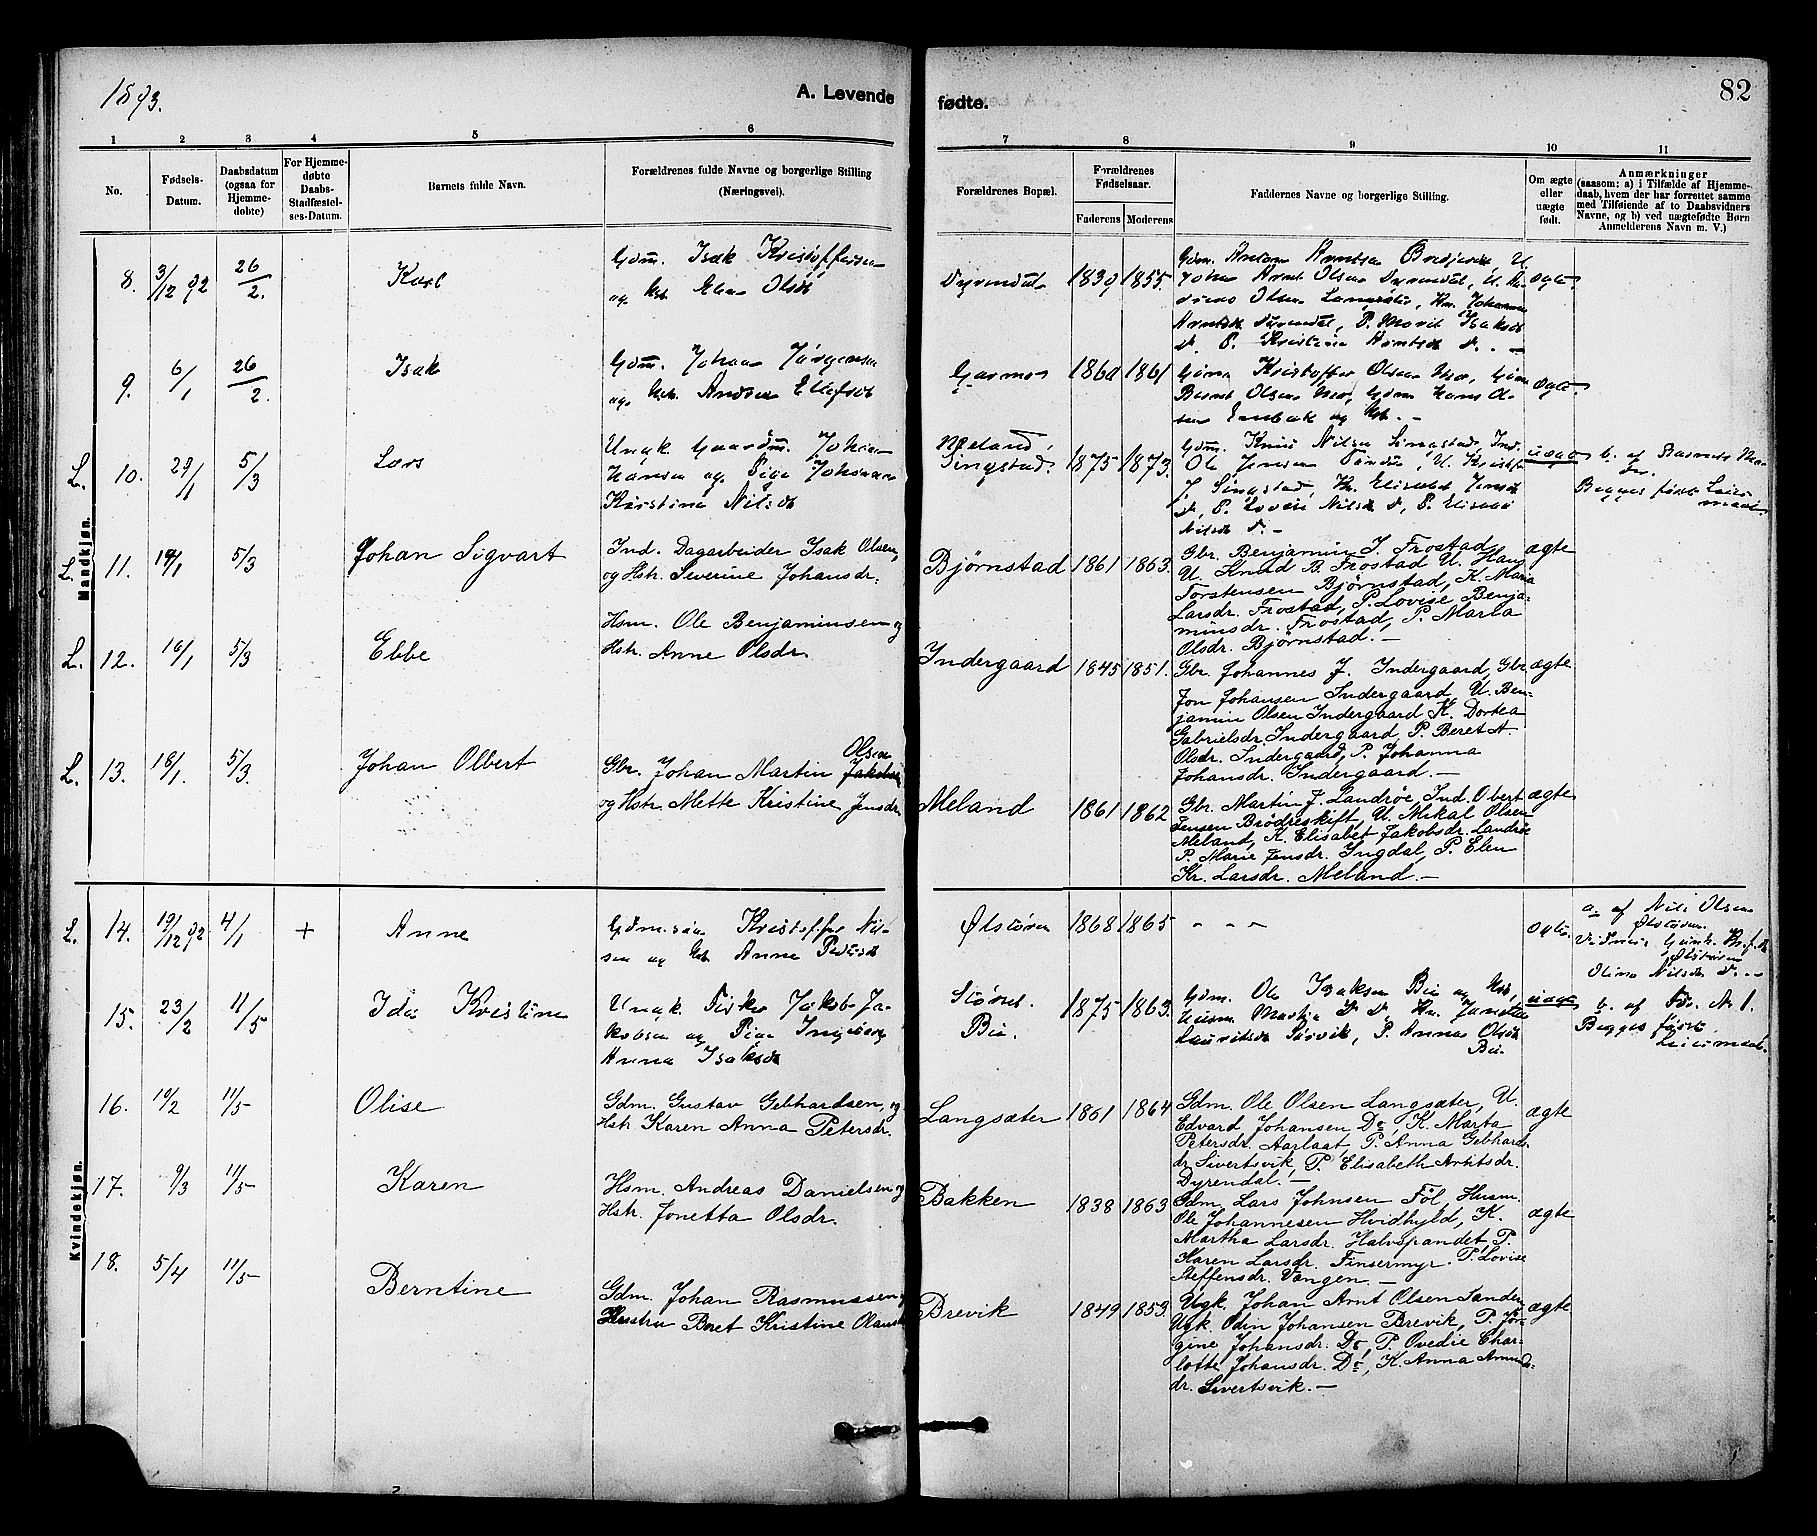 1893.
A. Levende
fødte.
82
1 2 3 4 5 6
7 8 9 10 11
No.
Fødsels-
Datum.
Daabsdatum
(ogsaa for
Hjemme-
døbte)
For Hjemme-
døbte
Daabs-
Stadfæstel-
ses-Datum.
Barnets fulde Navn.
Forældrenes fulde Navne og borgerlige Stilling
(Næringsvei).
Forældrenes Bopæl.
Forældrenes
Fødselsaar.
Faderens Moderens
Faddernes Navne og borgerlige Stilling.
Om ægte
eller
uægte
født.
Anmærkninger
(saasom: a) i Tilfælde af Hjemme-
daab, hvem der har forrettet samme
med Tilføiende af to Daabsvidners
Navne, og b) ved uægtefødte Børn
Anmelderens Navn m. V.)
Mandkjøn.
8. 3/12 92 26/2. Karl
Gdm. Isak Kristoffersen
og Hst. Elen Olsdt
Dyrendal 1839 1855.
Gdm. Anton Arntsen U.
Johan Arnt Olsen Dyrendal, U.
Olsen Langsæter, Johanna
Arntsdt Dyrendal, P. Marit Isaksdt
d. P. Kristine Arntsdt d. –
ægte
9. 6/1 26/2. Isak
Gdm. Johan Jørgensen
og Hst. Andrea Ellefsdt
Garmo 1860 1861
Gdm Kristoffer Olsen Moe, Gdm
Bernt Olsen Moe, Gdm Hans Ol-
sen og Hst. –
ægte
L. 10. 29/1 5/3 Lars
Ungk. Gaardm. Johan
Hansen og Pige Johanna
Kirstine Nilsdt
Meland,
Singstad. 1875 1873.
Gdm. Knut Nilsen Singstad, Ind.
Ole Jensen , U. Kristof
J. Singstad, Kn. Elisabet Jensdt
d, P. Lovise Nilsdt d, P. Elisabet
Nilsdt d. –
uægte
b. af Barnets Mo-
der.
Begges første Leier-
maal.
L. 11. 14/1 5/3 Johan Sigvart
Ind. Dagarbeider Isak Olsen,
og Hstr. Severine Johansdr.
Bjørnstad 1861 1863.
Gbr. Benjamin I. Frostad,
U. Knud B. Frostad U. Hans
Torstensen Bjørnstad, K. Maria
Larsdr. Frostad, P. Lovise Benja-
minsdr. Frostad, P. Marta
Olsdr. Bjørnstad. –
ægte
L. 12. 16/1 5/3 Ebbe
Hsm. Ole Benjaminsen og
Hstr. Anne Olsdr.
Indergaard 1845 1851.
Gbr. Johannes J. Indergaard, Gbr
Jon Johansen Indergaard, U. Ben-
jamin Olsen Indergaard K. Dortea
Gabrielsdr. Indergaard, P. Beret A.
Olsdr. Indergaard, P. Johanna
Johansdr. Indergaard. –
ægte
L. 13. 18/1. 5/3. Johan Olbert
Olsen
Gbr. Johan Martin Jakobsen
og Hstr. Mette Kristine Jensdr.
Meland 1861 1862
Gbr. Martin J. Landrøe, Ind. Obert
Jensen Brødreskift, U. Mikal Olsen
Meland, K. Elisabet Jakobsdr. Landrøe
P. Marie Jensdr. Ingdal, P. Elen
Kr. Larsdr. Meland. –
ægte
Kvindekjøn.
L. 14. 19/12 92 4/1 + Anne
Kristoffer Nil-
sen og Hst. Anne Pedersdt
Ølstøren 1868 1865 - - -
ægte
a. af Nils Olsen
Ølstøren.
Ølstøren
Olina Nilsdt d. –
15. 23/2 11/5 Ida Kristine
Ungk. Fisker Jakob Ja-
kobsen og Pige Ingeborg
Anna Isaksdt
Støret.
Bie. 1875 1863.
Gdm. Ole Isaksen Bie og Hst,
Martha d. d. Kn.
Lauritsdt Sørvik, P. Anna Olsdt
Bie.
uægte
b. af No. 1.
Begges første
Leiermaal.
16. 19/2 11/5 Olise
Gdm. Gustav Gebhardsen, og
Hstr. Karen Anna Petersdr.
Langsæter 1861 1864
Gdm. Ole Olsen Langsæter, U.
Edvard Johansen Do, K. Marta
Petersdr. Aarlaat, P. Anna Gebhards-
dr. Sivertsvik, P. Elisabeth Arntsdr.
Dyrendal. –
ægte
17. 9/3 11/5 Karen
Hsm. Andreas Danielsen og
Hstr. Jonetta Olsdr.
Bakken 1838 1863
Gdm. Lars Johnsen Føl, Husm.
Ole Johannesen Hvidhyld, K.
Martha Larsdr. Halvspandet P.
Karen Larsdr. Finsermyr. P. Lovise
Steffensdr. Vangen. –
ægte
18. 5/4 11/5 Berntine
Gdm. Johan Rasmussen og
Hustru Beret Kristine Olausdr
Brevik 1849 1853.
Ugk. Johan Arnt Olsen Sanden
Ugk. Odin Johansen Brevik, P. Jør-
gine Johansdr. Do, P. Ovedie Char-
lotte Johansdr. Do, K. Anna Amunds-
dr. Sivertsvik. –
ægte